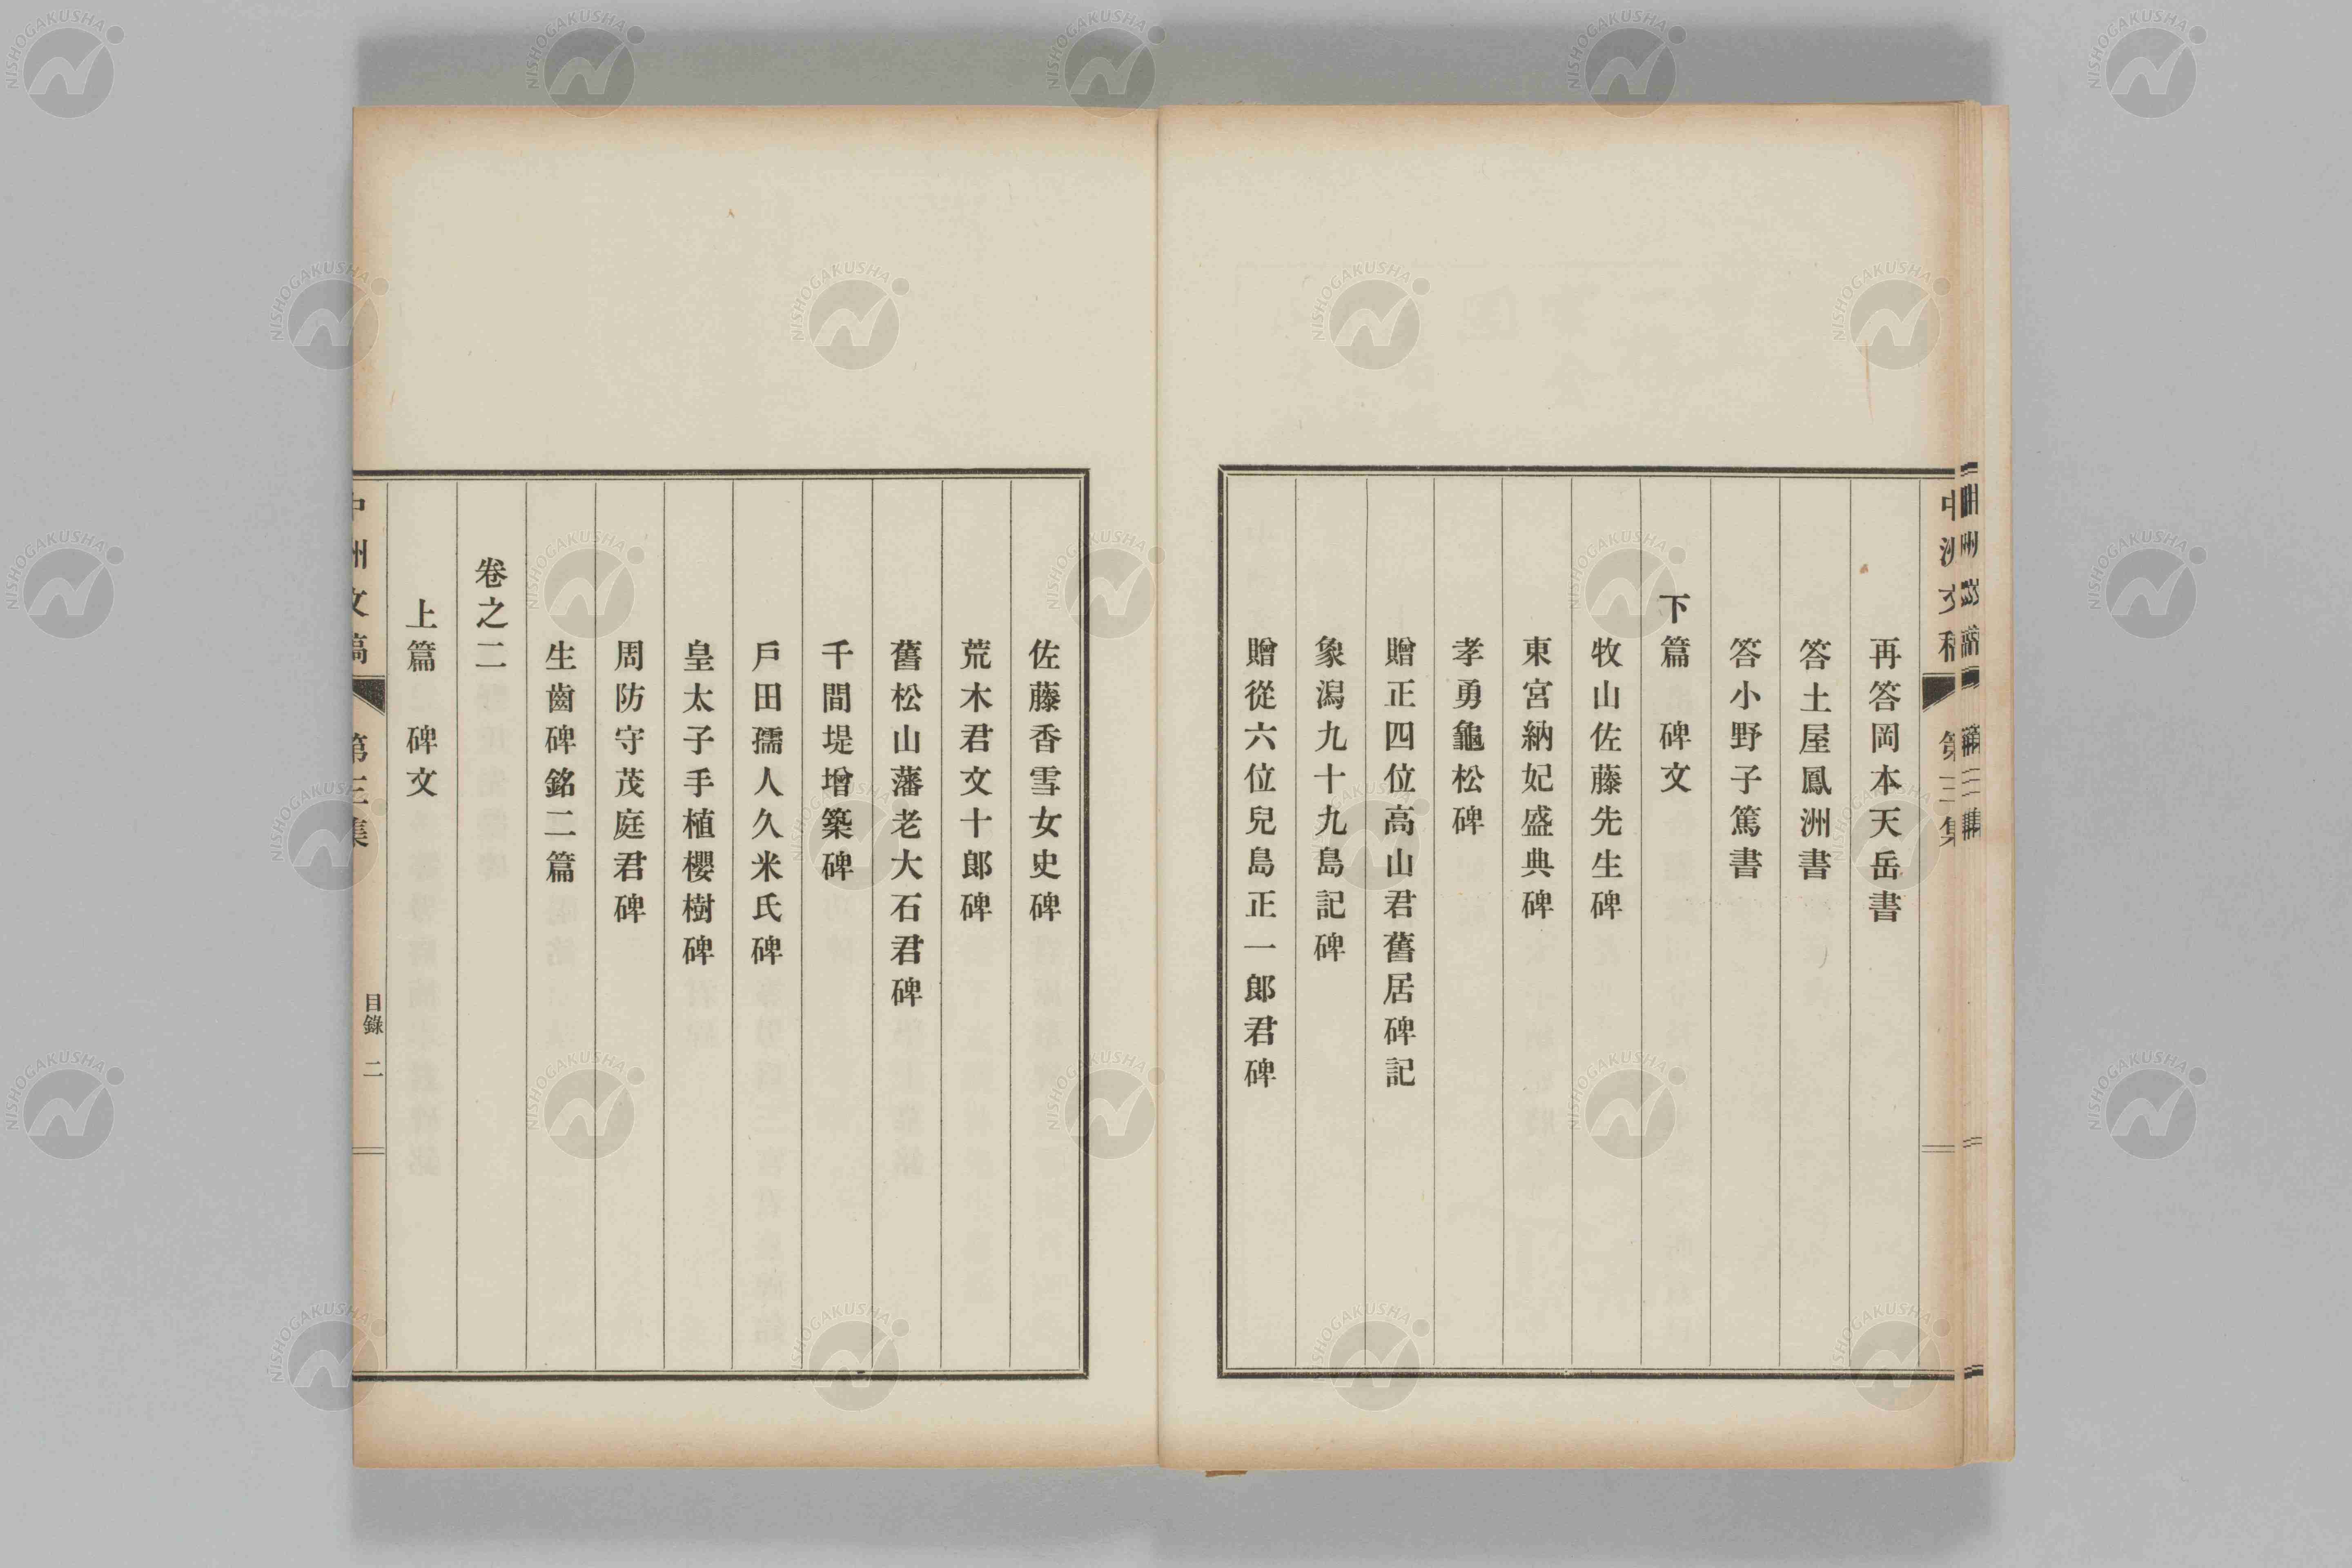 再答岡本天岳書
答土屋鳳洲書
答小野子篤書
下篇 碑文
牧山佐藤先生碑
東宮納妃盛典碑
孝勇龜松碑
贈正四位高山君舊居碑記
象潟九十九島記碑
贈從六位兒島正一郞君碑
佐藤香雪女史碑
荒木君文十郞碑
舊松山藩老大石君碑
千間堤增築碑
戶田孺人久米氏碑
皇太子手植櫻樹碑
周防守茂庭君碑
生齒碑銘二篇
卷之二
上篇 碑文
中洲文稿 第三集 目錄 二
NISHOGAKUSHA